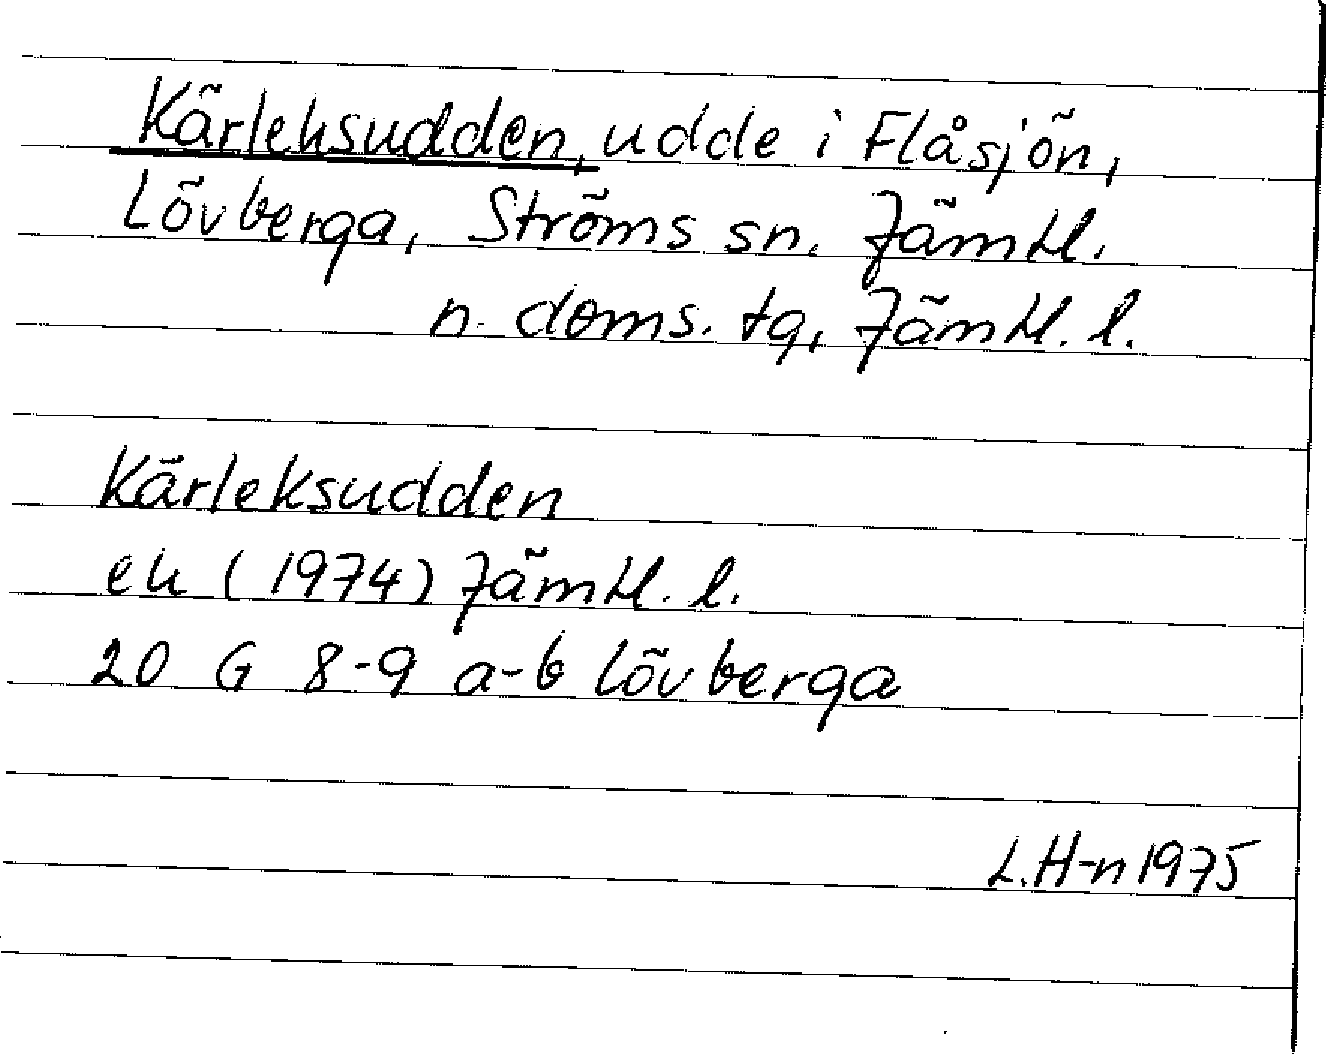 Kärleksudden, udde i Flåsjön,
Lövberga, Ströms sn. Jämtl.
n. doms. tg, Jämtl. l.
Kärleksudden
ek (1974) Jämtl. l.
20 G 8-9 a-b Lövberga
L.H-n 1975